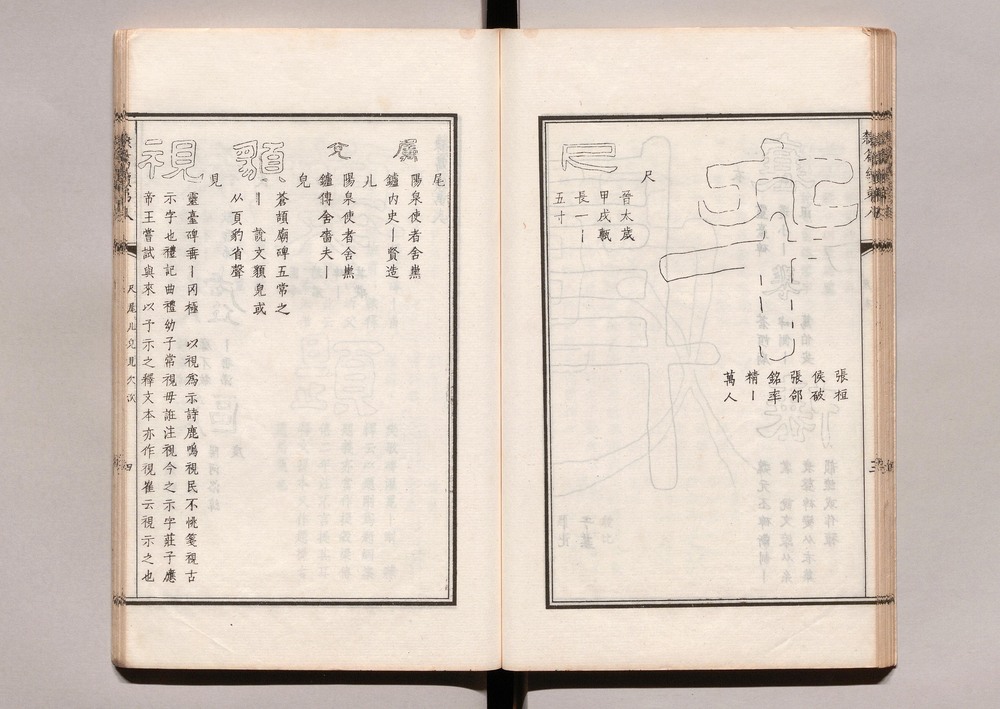 張桓
侯破
張郃
銘率
精丨
萬人
尺
尺
晉太歲
甲戌甎
長一丨
五寸
尾
陽泉使者舍熏
鑪內史丨賢造
儿
陽泉使者舍熏
鑪傳舍嗇夫丨
皃
蒼頡廟碑五常之
丨 說文䫉皃或
从頁豹省聲
視
見
靈臺碑垂丨罔極 以視為示詩鹿鳴視民不恌箋視古
示字也禮記曲禮幼子常視毋誑注視今之示字莊子應
帝王嘗試與來以予示之釋文本亦作視崔云視示之也
四